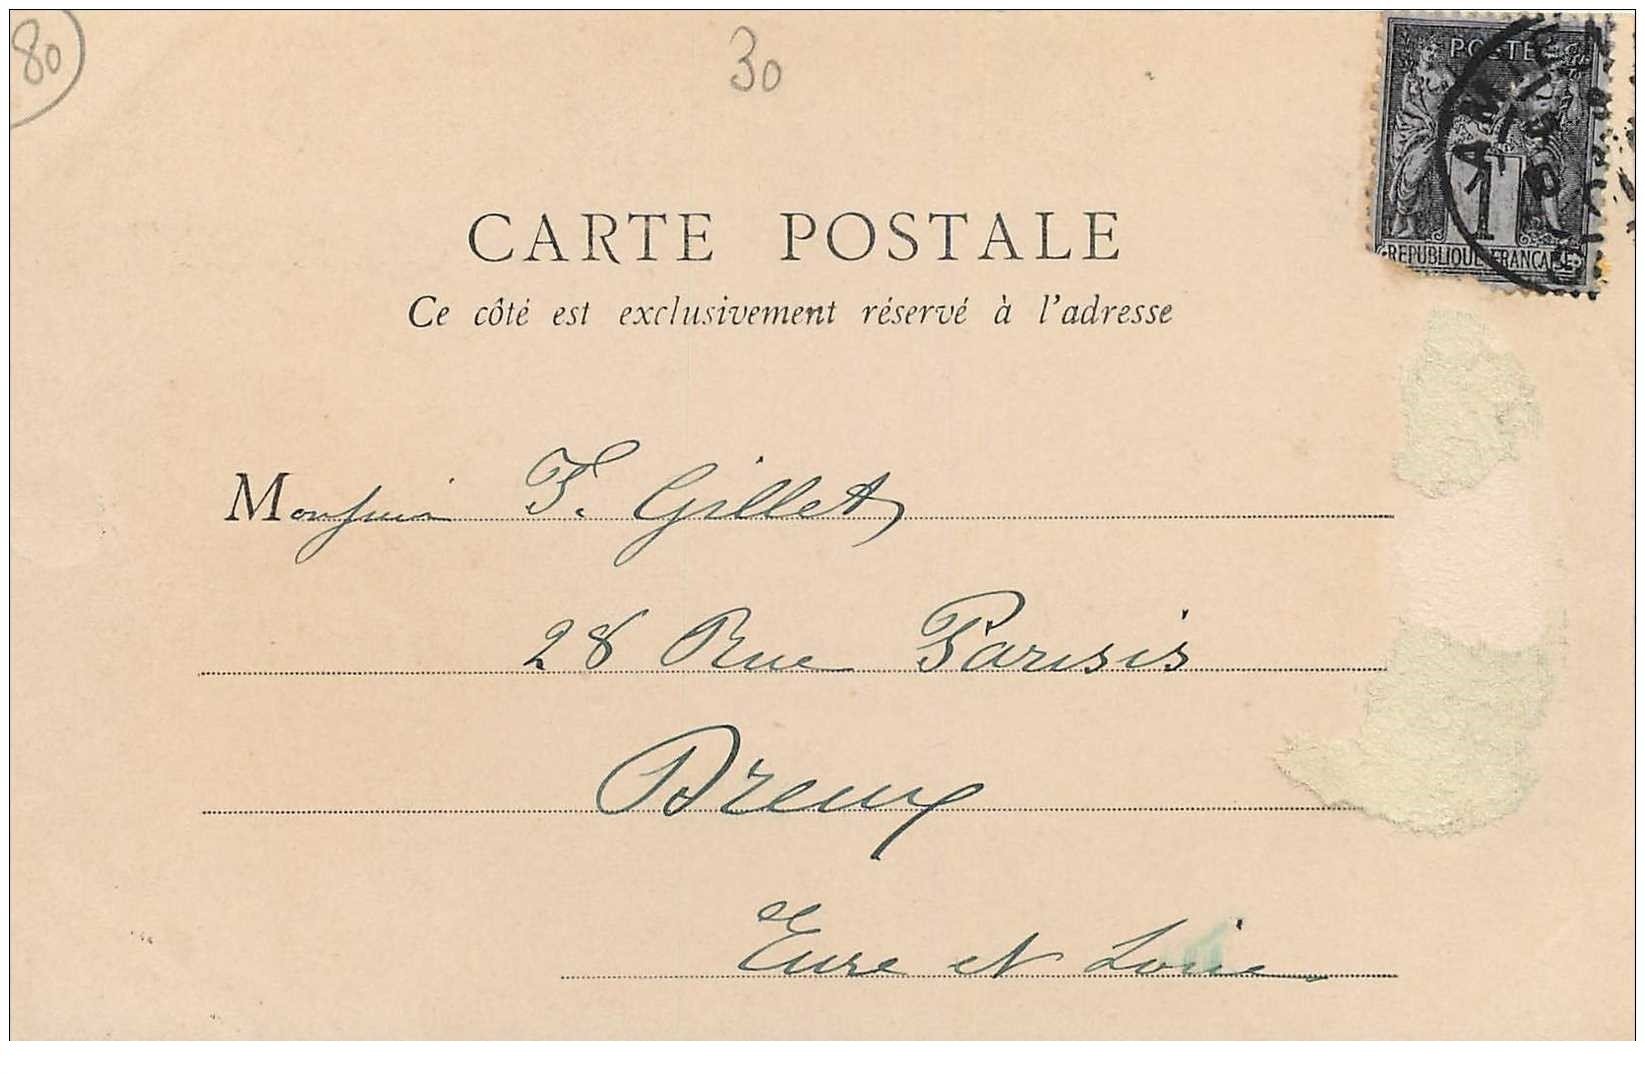 80
30
POSTE
1
REPUBLIQUE FRANCAISE
AMIENS
CARTE POSTALE
Ce côté est exclusivement réservé à l'adresse
Monsieur F. Gillet
28 Rue Parisis
Dreux
Eure et Loire